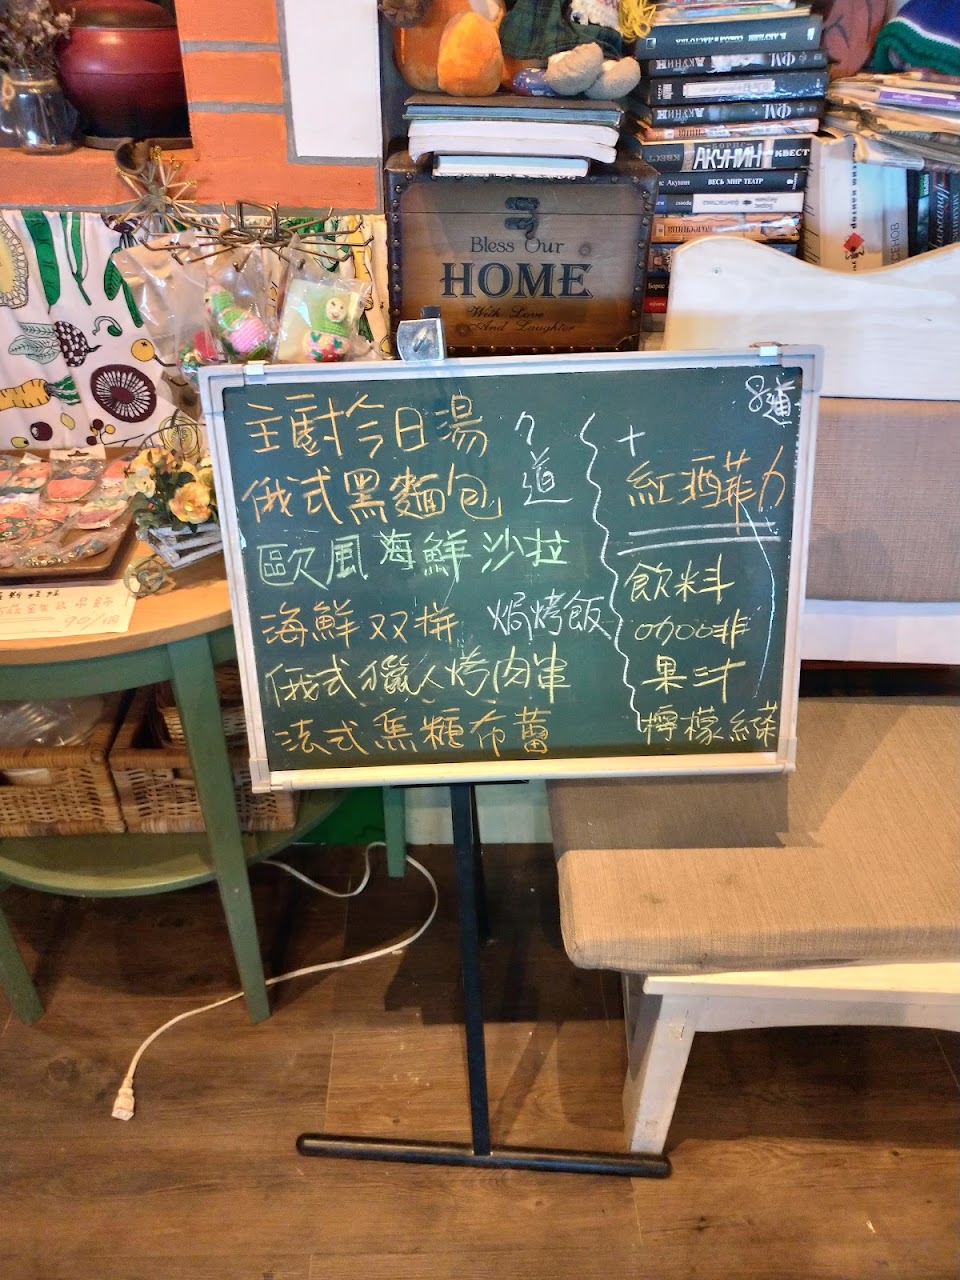 АКУНИН
АКУНИН
БОРИС
КВЕСТ АКУНИН КВЕСТ
ис Акунин ВЕСЬ МИР ТЕАТР
Bless Our
HOME
With Love
And Laughter
主廚今日湯
俄式黑麵包
7道
歐風海鮮沙拉
海鮮双拼 焗烤飯
俄式獵人烤肉串
法式焦糖布蕾
8道
+
紅酒菲力
飲料
咖啡
果汁
檸檬綠茶
90/個